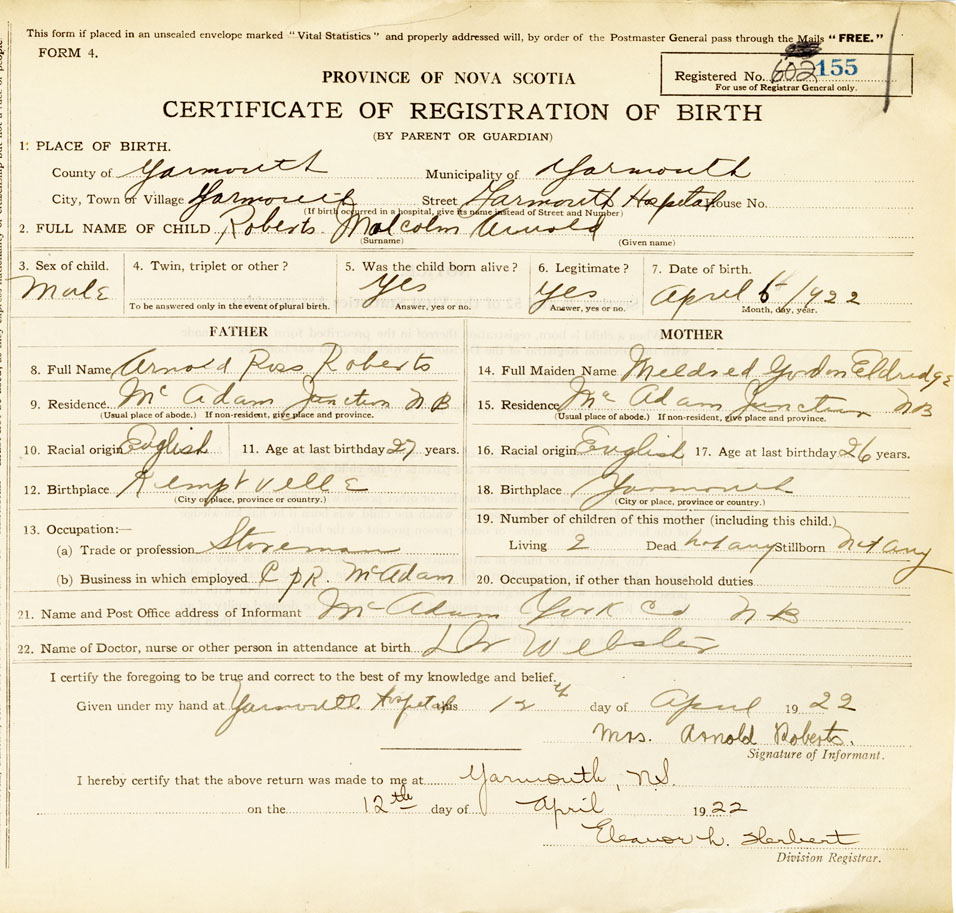 This form if placed in an unsealed envelope marked "Vital Statistics" and properly addressed will, by order of the Postmaster General pass through the Mails "FREE."
FORM 4.
Registered No. 602 155
For use of Registrar General only.
PROVINCE OF NOVA SCOTIA
CERTIFICATE OF REGISTRATION OF BIRTH
(BY PARENT OR GUARDIAN)
1. PLACE OF BIRTH.
County of Yarmouth Municipality of Yarmouth
City, Town or Village Yarmouth Street Yarmouth Hospital House No.
(If birth occurred in a hospital, give its name instead of Street and Number)
2. FULL NAME OF CHILD Roberts Malcolm Arnold
(Surname) (Given name)
3. Sex of child. 4. Twin, triplet or other? 5. Was the child born alive? 6. Legitimate? 7. Date of birth.
Male Yes Yes April 6 1922
To be answered only in the event of plural birth. Answer, yes or no. Answer, yes or no. Month, day, year.
FATHER MOTHER
8. Full Name Arnold Ross Roberts 14. Full Maiden Name Mildred Gordon Eldridge
9. Residence Mc Adam Junction N B 15. Residence Mc Adam Junction N B
(Usual place of abode.) If non-resident, give place and province. (Usual place of abode.) If non-resident, give place and province.
10. Racial origin English 11. Age at last birthday 27 years. 16. Racial origin English 17. Age at last birthday 26 years.
12. Birthplace Kemptville 18. Birthplace Yarmouth
(City or place, province or country.) (City or place, province or country.)
13. Occupation:— 19. Number of children of this mother (including this child.)
(a) Trade or profession Storeman Living 2 Dead not any Stillborn not any
(b) Business in which employed C P R. McAdam 20. Occupation, if other than household duties
21. Name and Post Office address of Informant Mc Adam York Co N B
22. Name of Doctor, nurse or other person in attendance at birth Dr Webster
I certify the foregoing to be true and correct to the best of my knowledge and belief.
Given under my hand at Yarmouth Hospital this 12th day of April 1922
Mrs. Arnold Roberts.
Signature of Informant.
I hereby certify that the above return was made to me at Yarmouth, N.S.
on the 12th day of April 1922
Eleanor L. Herbert
Division Registrar.